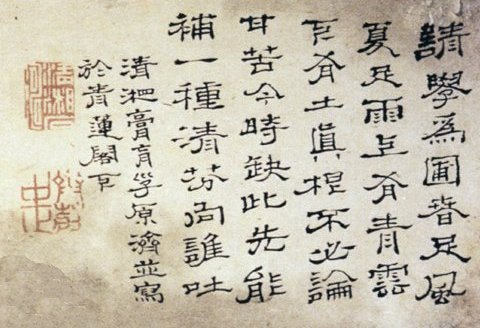 請學爲圃春足風
夏足雨上有青雲
下有土真根不必論
甘苦今時缺此先能
補一種清芬向誰吐
清湘膏肓子原濟並寫
於青蓮閣下